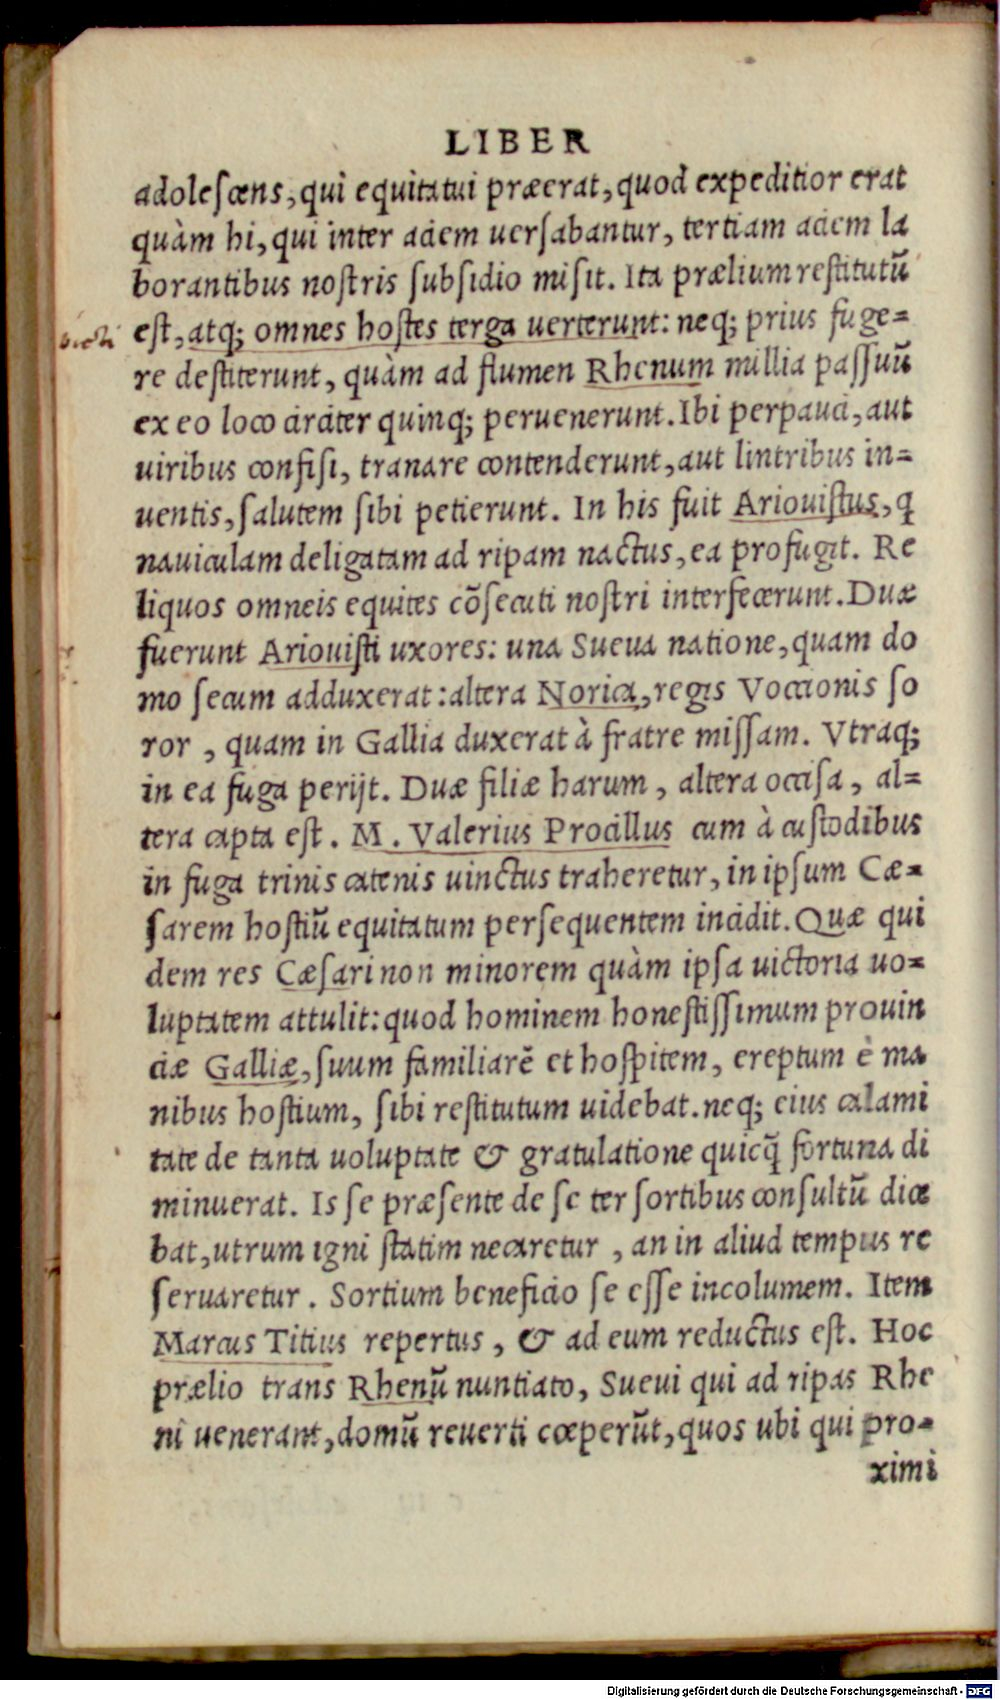 LIBER
adoleſcens, qui equitatui præerat, quod expeditior erat
quàm hi, qui inter aciem uerſabantur, tertiam aciem la
borantibus noſtris ſubſidio miſit. Ita prælium reſtitutū
eſt, atq; omnes hoſtes terga uerterunt: neq; prius fuge=
re deſtiterunt, quàm ad flumen Rhenum millia paſſuū
ex eo loco circiter quinq; peruenerunt. Ibi perpauci, aut
uiribus confiſi, tranare contenderunt, aut lintribus in=
uentis, ſalutem ſibi petierunt. In his fuit Ariouiſtus, q
nauiculam deligatam ad ripam nactus, ea profugit. Re
liquos omneis equites cõſecuti noſtri interfecerunt. Duæ
fuerunt Ariouiſti uxores: una Sueua natione, quam do
mo ſecum adduxerat: altera Norica, regis Voccionis ſo
ror, quam in Gallia duxerat à fratre miſſam. Vtraq;
in ea fuga perijt. Duæ filiæ harum, altera occiſa, al=
tera capta eſt. M. Valerius Procillus cum à cuſtodibus
in fuga trinis catenis uinctus traheretur, in ipſum Cæ=
ſarem hoſtiū equitatum perſequentem incidit. Quæ qui
dem res Cæſari non minorem quàm ipſa uictoria uo=
luptatem attulit: quod hominem honeſtiſſimum prouin
ciæ Galliæ, ſuum familiarē et hoſpitem, ereptum è ma
nibus hoſtium, ſibi reſtitutum uidebat. neq; eius calami
tate de tanta uoluptate & gratulatione quicq̃ fortuna di
minuerat. Is ſe præſente de ſe ter ſortibus conſultū dice
bat, utrum igni ſtatim necaretur, an in aliud tempus re
ſeruaretur. Sortium beneficio ſe eſſe incolumem. Item
Marcus Titius repertus, & ad eum reductus eſt. Hoc
prælio trans Rhenū nuntiato, Sueui qui ad ripas Rhe
ni uenerant, domū reuerti cœperūt, quos ubi qui pro=
ximi
Digitalisierung gefördert durch die Deutsche Forschungsgemeinschaft - DFG